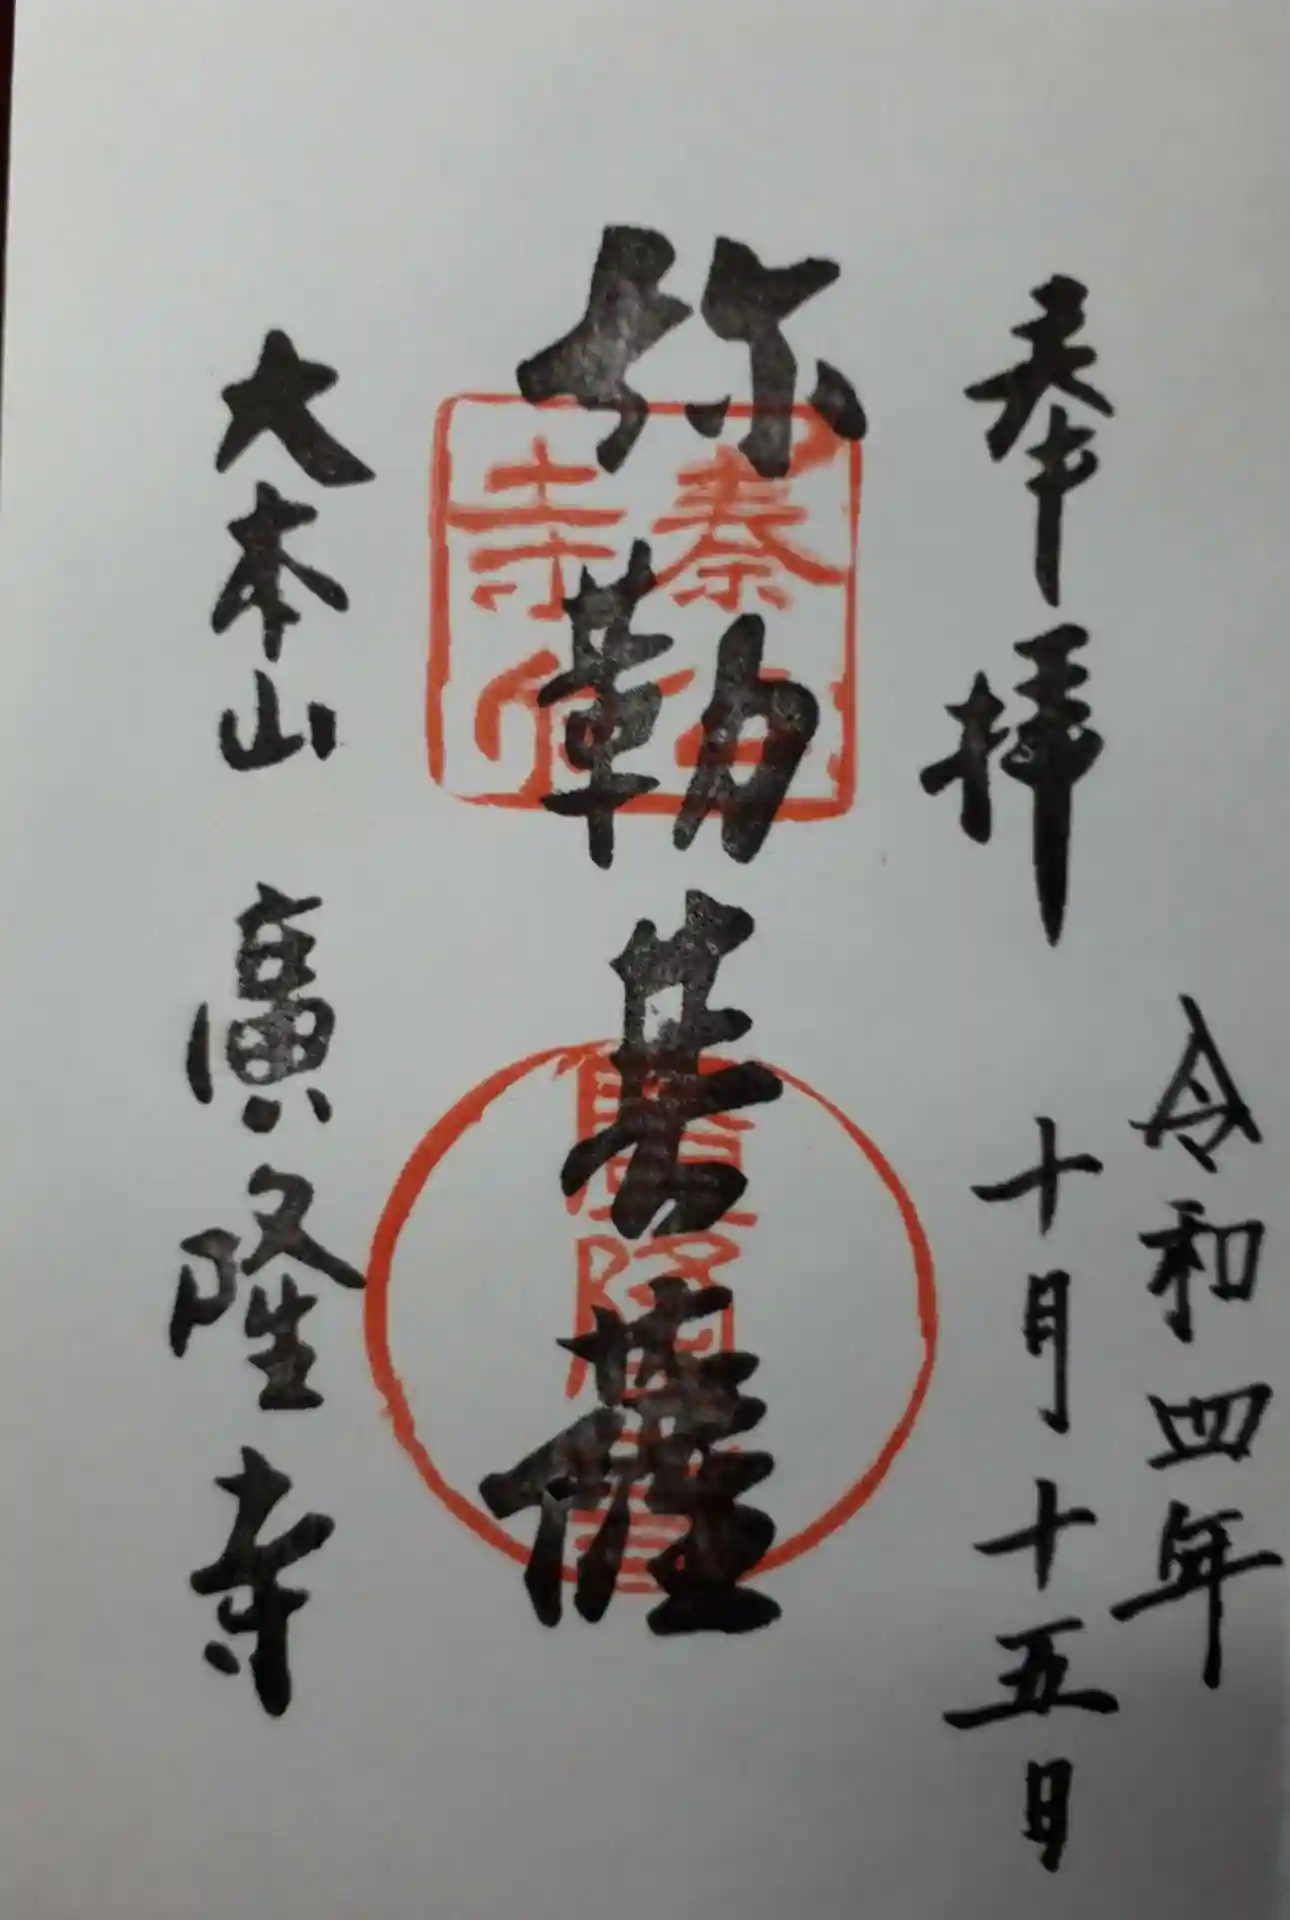 令和四年
奉拝 十月十五日
弥勒菩薩
大本山 廣隆寺